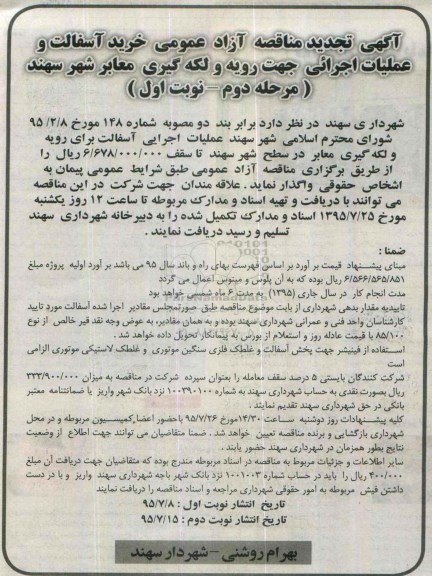 آگهی تجدید مناقصه آزاد عمومی خرید آسفالت و
عملیات اجرائی جهت رویه و لکه گیری معابر شهر سهند
( مرحله دوم - نوبت اول )
شهرداری سهند در نظر دارد برابر بند دو مصوبه شماره ۱۴۸ مورخ ۹۵/۲/۸
شورای محترم اسلامی شهر سهند عملیات اجرایی آسفالت برای رویه
و لکه گیری معابر در سطح شهر سهند تا سقف ۶/۶۷۸/۰۰۰/۰۰۰ ریال را
از طریق برگزاری مناقصه آزاد عمومی طبق شرایط عمومی پیمان به
اشخاص حقوقی واگذار نماید . علاقه مندان جهت شرکت در این مناقصه
می توانند با دریافت و تهیه اسناد و مدارک مربوطه تا ساعت ۱۲ روز یکشنبه
مورخ ۱۳۹۵/۷/۲۵ اسناد و مدارک تکمیل شده را به دبیرخانه شهرداری سهند
تسلیم و رسید دریافت نمایند .
ضمنا :
مبنای پیشنهاد قیمت بر آورد بر اساس فهرست بهای راه و باند سال ۹۵ می باشد بر آورد اولیه پروژه مبلغ
۶/۵۶۶/۵۶۵/۸۵۱ ریال بوده که به آن پلوس و مینوس اعمال می گردد
مدت انجام کار در سال جاری (۱۳۹۵) به مدت ۶ ماه شمسی خواهد بود
تاییدیه مقدار بدهی شهرداری از بابت موضوع مناقصه طبق صورتمجلس مقادیر اجرا شده آسفالت مورد تایید
کارشناسان واحد فنی و عمرانی شهرداری سهند بوده و به همان مقادیر، به عوض وجه نقد قیر خالص از نوع
۸۵/۱۰۰ با قیمت عادله روز و استعلام از بورس به پیمانکار تحویل داده خواهد شد .
استفاده از فینیشر جهت پخش آسفالت و غلطک فلزی سنگین موتوری و غلطک لاستیکی موتوری الزامی
است
شرکت کنندگان بایستی ۵ درصد سقف معامله را بعنوان سپرده شرکت در مناقصه به میزان ۳۳۳/۹۰۰/۰۰۰
ریال بصورت نقدی به حساب شهرداری سهند به شماره ۱۰۰۳۹۰۱۰۰ نزد بانک شهر واریز یا ضمانتنامه معتبر
بانکی در حق شهرداری سهند تقدیم نمایند .
کلیه پیشنهادات روز دوشنبه ساعت ۱۴/۳۰ مورخ ۹۵/۷/۲۶ باحضور اعضا کمیسیون مربوطه و در محل
شهرداری بازگشایی و برنده مناقصه تعیین خواهد شد . ضمنا متقاضیان می توانند جهت اطلاع از وضعیت
نتایج بطور همزمان در شهرداری سهند حضور یابند .
سایر اطلاعات و جزئیات مربوط به مناقصه در اسناد مربوطه مندرج بوده که متقاضیان جهت دریافت آن مبلغ
۴۰۰/۰۰۰ ریال را باید در حساب شماره ۱۰۰۱۰۰۳ نزد بانک شهر باجه شهرداری سهند واریز و با در دست
داشتن فیش مربوطه به امور حقوقی شهرداری مراجعه و اسناد مناقصه را دریافت نمایند
تاریخ انتشار نوبت اول : ۹۵/۷/۸
تاریخ انتشار نوبت دوم : ۹۵/۷/۱۵
بهرام روشنی - شهردار سهند